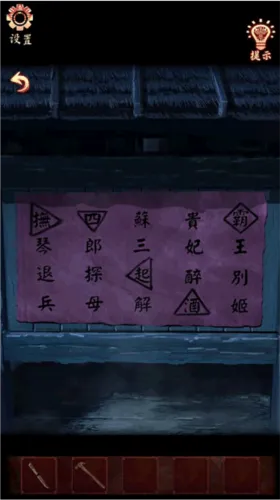 设置
提示
霸王別姬
貴妃醉酒
蘇三起解
四郎探母
撫琴退兵